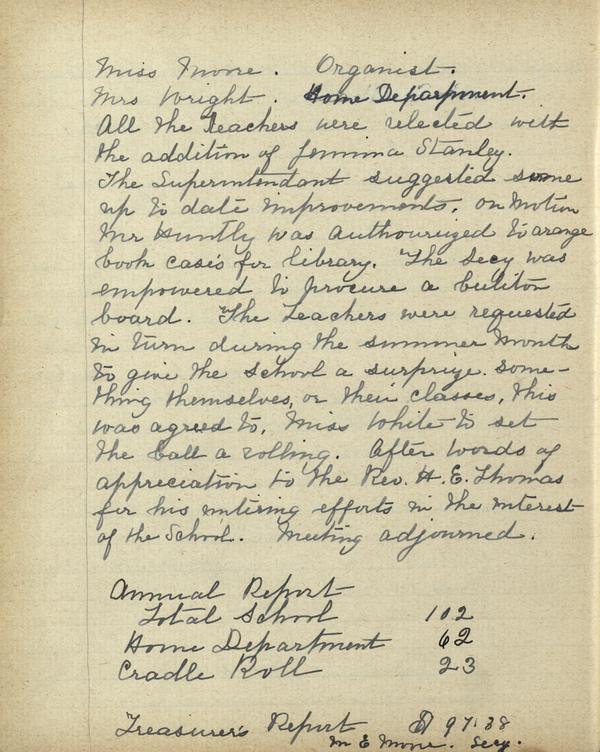 Miss Moore. Organist.
Mrs Wright. Home Department.
All the Teachers were relected with
the addition of Jemima Stanley.
The Superintendant suggested some
up to date improvements, on motion
Mr Huntly was authourized to arange
book cases for library. The Secy was
empowered to procure a buliton
board. The Teachers were requested
in turn during the summer month
to give the school a surprize. some-
thing themselves, or their classes, this
was agreed to, Miss White to set
the ball a rolling. After words of
appreciation to the Rev. H. E. Thomas
for his untiring efforts in the interest
of the School. Meeting adjourned.
Annual Report
Total School 102
Home Department 62
Cradle Roll 23
Treasurer's Report 97.38
M E Moore. Secy.